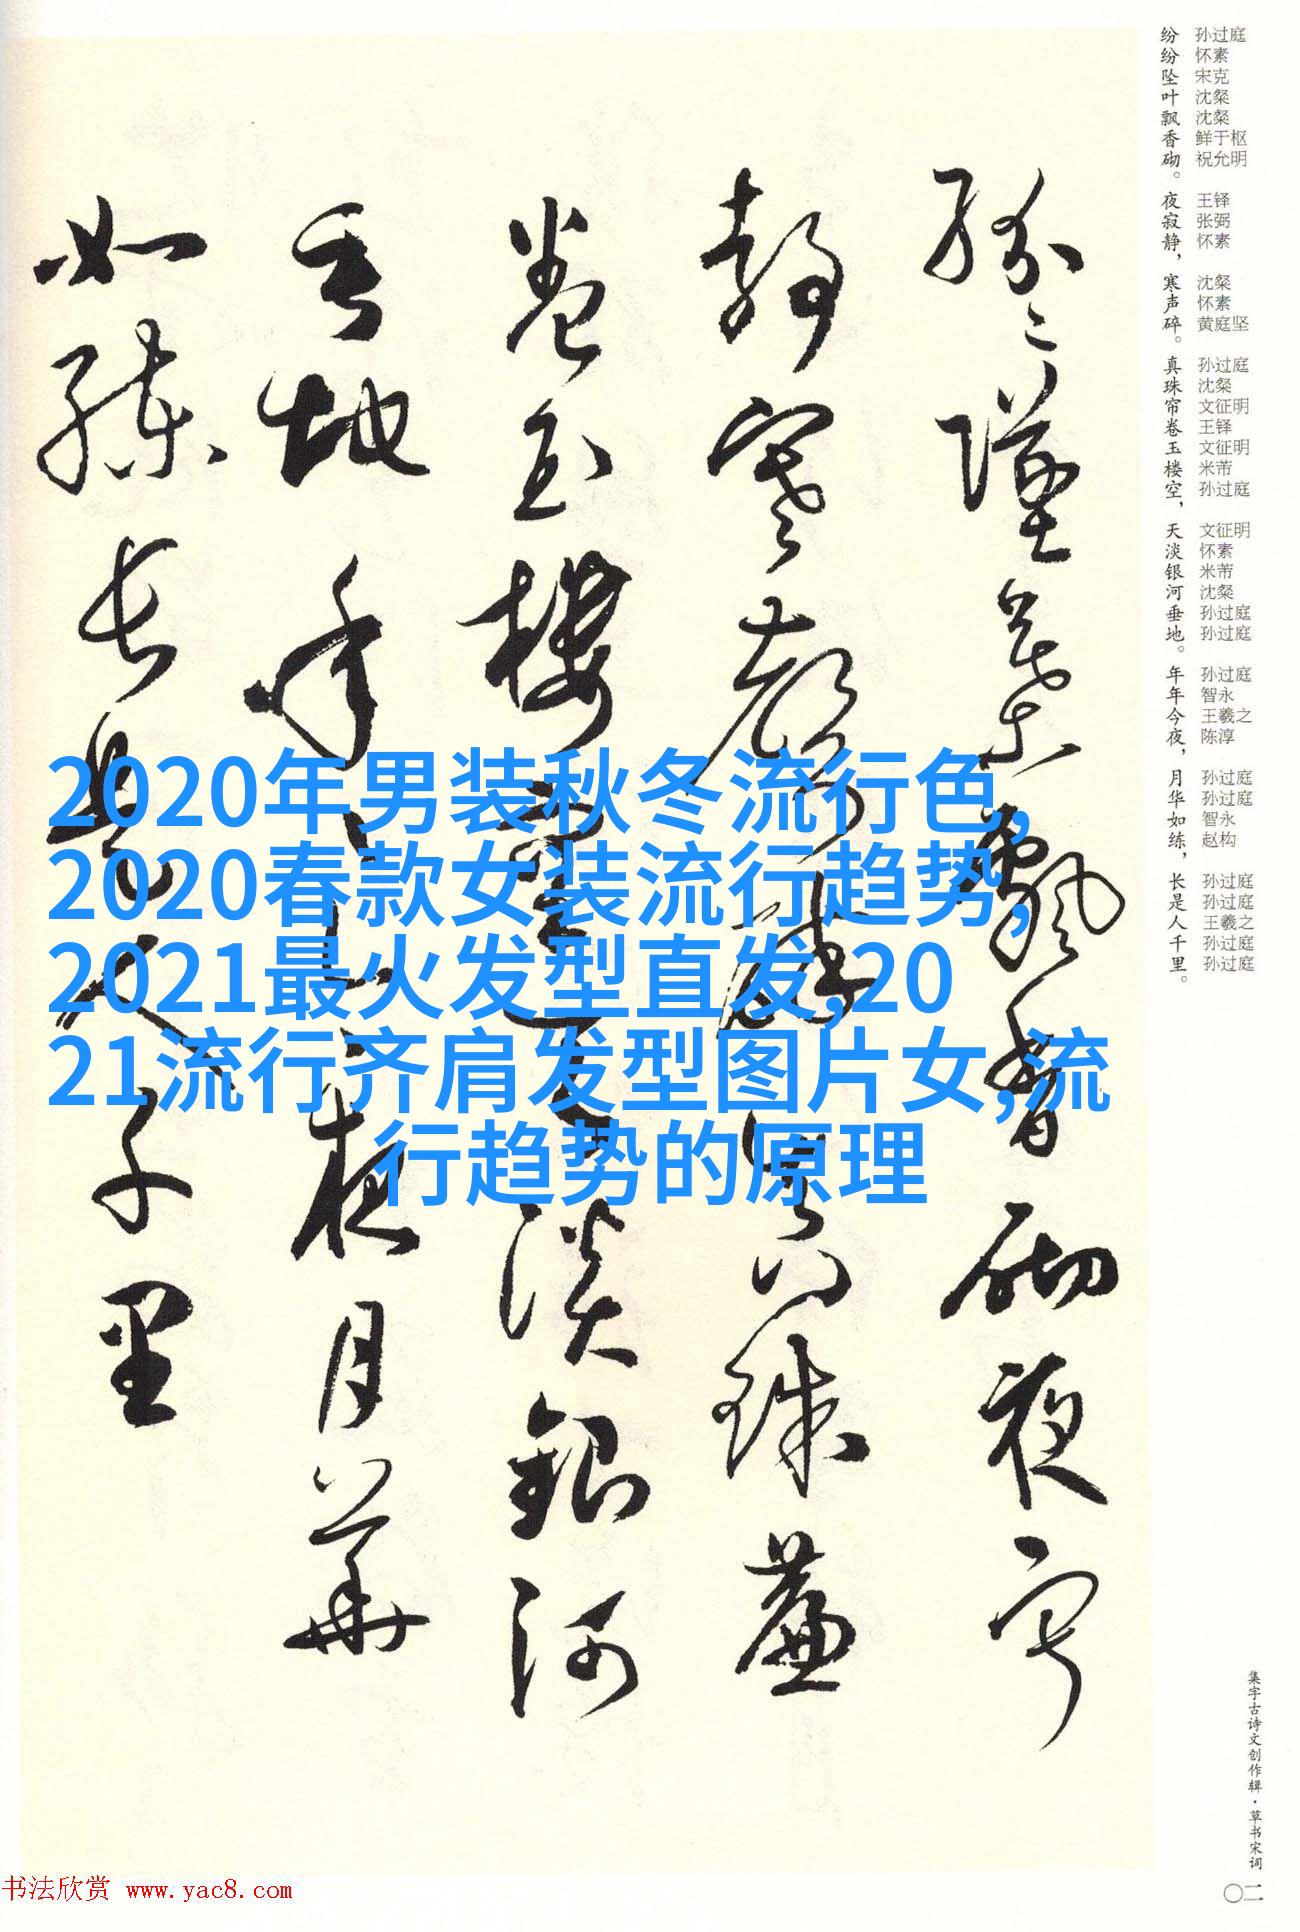 纷 孙过庭
纷 怀素
坠 宋克
叶 沈粲
飘 沈粲
香 鲜于枢
砌。 祝允明
夜 王铎
寂 张弼
静， 怀素
寒 沈粲
声 怀素
碎。 黄庭坚
真 孙过庭
珠 沈粲
帘 文征明
卷 王铎
玉 文征明
楼 米芾
空， 孙过庭
天 文征明
淡 怀素
银 米芾
河 沈粲
垂 孙过庭
地。 孙过庭
年 孙过庭
年 智永
今 王羲之
夜， 陈淳
月 孙过庭
华 孙过庭
如 智永
练， 赵构
长 孙过庭
是 孙过庭
人 王羲之
千 孙过庭
里。 孙过庭
紛々墜葉飄香砌夜寂
静寒聲碎真珠簾
卷玉樓空天淡銀河
垂地年々今夜月華
如練長是人千里
2020年男装秋冬流行色,
2020春款女装流行趋势,
2021最火发型直发,20
21流行齐肩发型图片女,流
行趋势的原理
集字古诗文创作辑·草书宋词
〇二
书法欣赏 www.yac8.com